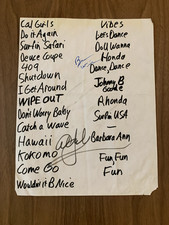 Cal Gurls
Do it Again
Surfin Safari
Deuce Coupe
409
Shutdown
I Get Around
WIPE OUT
Don't Worry Baby
Catch a Wave
Hawaii
Kokomo
Come Go
Wouldn't it B Nice
Vibes
Let's Dance
Doll Wanna
Honda
Dance, Dance
Johnny B
Goode
Rhonda
Surfin USA
Barbara Ann
Fun, Fun,
Fun